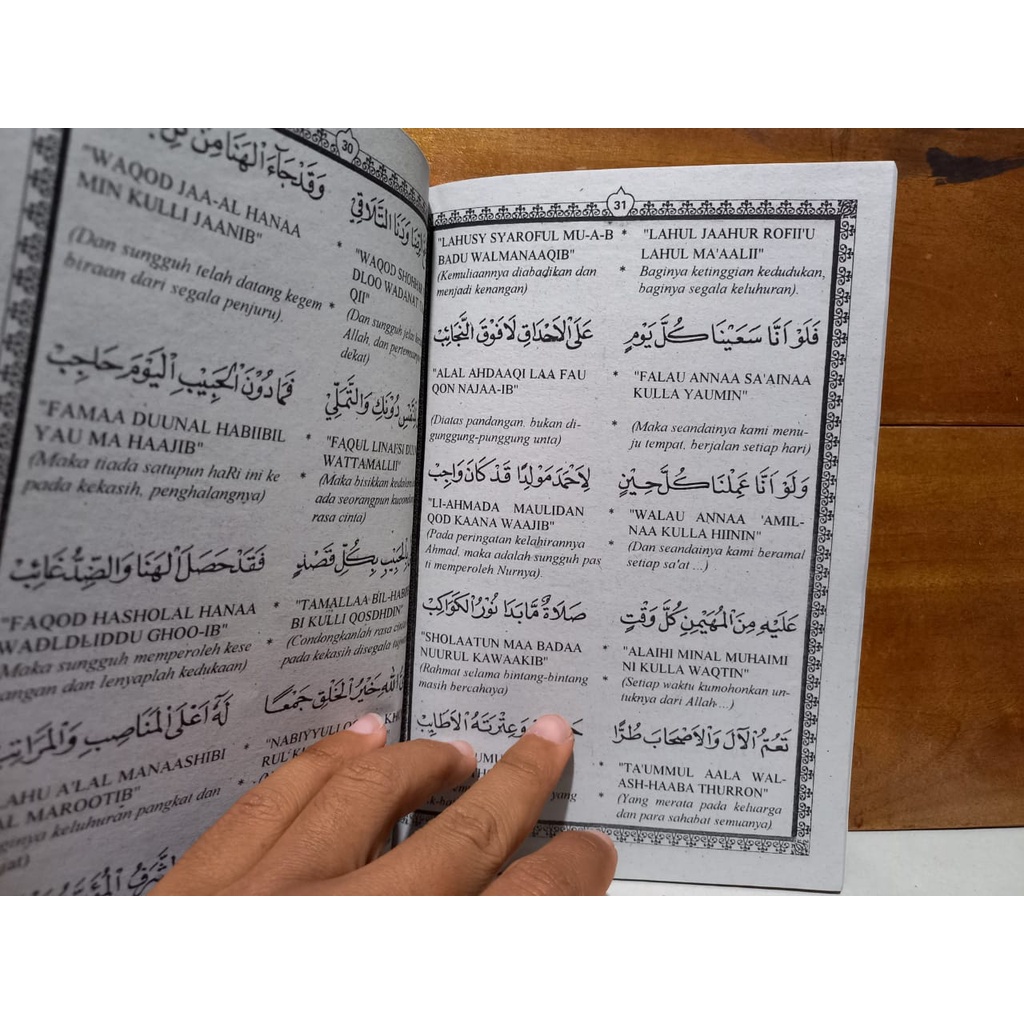 30
وَقَدْ جَاءَ الْهَنَا مِنْ
"WAQOD SHOHHA
DLOO WADANAT
QII"
(Dan sungguh jelas
Allah, dan pertemuan
dekat)
"WAQOD JAA-AL HANAA
MIN KULLI JAANIB"
(Dan sungguh telah datang kegem
biraan dari segala penjuru).
دُوْنَكِ وَالتَّمَلِّيْ
فَمَا دُوْنَ الْحَبِيْبِ الْيَوْمَ حَاجِبْ
"FAQUL LINAFSI
WATTAMALLII"
(Maka bisikkan
ada seorangpun
rasa cinta)
"FAMAA DUUNAL HABIIBIL
YAU MA HAAJIB"
(Maka tiada satupun haRi ini ke
pada kekasih, penghalangnya)
بِالْحَبِيْبِ بِكُلِّ قَصْدٍ
فَقَدْ حَصَلَ الْهَنَا وَالضِّدُّ غَائِبْ
"TAMALLAA BIL-HABII
BI KULLI QOSDHDIN"
(Condongkanlah rasa
pada kekasih disegala
"FAQOD HASHOLAL HANAA
WADLDLIDDU GHOO-IB"
Maka sungguh memperoleh kese
nangan dan lenyaplah kedukaan)
اللّٰهِ خَيْرُ الْخَلْقِ جَمْعًا
لَهُ أَعْلَى الْمَنَاصِبِ وَالْمَرَاتِبْ
"NABIYYULL
RUL
LAHU A'LAL MANAASHIBI
AL MAROOTIB"
ginya keluhuran pangkat dan
31
"LAHUL JAAHUR ROFII'U
LAHUL MA'AALII"
Baginya ketinggian kedudukan,
baginya segala keluhuran).
"LAHUSY SYAROFUL MU-A-B
BADU WALMANAAQIB"
(Kemuliaannya diabadikan dan
menjadi kenangan)
فَلَوْ أَنَّا سَعَيْنَا كُلَّ يَوْمٍ
عَلَى الْاَحْدَاقِ لَا فَوْقَ النَّجَائِبْ
"FALAU ANNAA SA'AINAA
KULLA YAUMIN"
(Maka seandainya kami menu-
ju tempat, berjalan setiap hari)
"ALAL AHDAAQI LAA FAU
QON NAJAA-IB"
(Diatas pandangan, bukan di-
gunggung-punggung unta)
وَلَوْ أَنَّا عَمِلْنَا كُلَّ حِيْنٍ
لِاَحْمَدَ مَوْلِدًا قَدْ كَانَ وَاجِبْ
"WALAU ANNAA 'AMIL-
NAA KULLA HIININ"
(Dan seandainya kami beramal
setiap sa'at ...)
"LI-AHMADA MAULIDAN
QOD KAANA WAAJIB"
(Pada peringatan kelahirannya
Ahmad, maka adalah sungguh pas
ti memperoleh Nurnya).
عَلَيْهِ مِنَ الْمُهَيْمِنِ كُلَّ وَقْتٍ
صَلَاةٌ مَّا بَدَا نُوْرُ الْكَوَاكِبْ
"ALAIHI MINAL MUHAIMI
NI KULLA WAQTIN"
(Setiap waktu kumohonkan un-
tuknya dari Allah....)
"SHOLAATUN MAA BADAA
NUURUL KAWAAKIB"
(Rahmat selama bintang-bintang
masih bercahaya)
تَعُمُّ الْاٰلَ وَالْاَصْحَابَ طُرًّا
وَعِتْرَتَهُ الْاَطَايِبْ
"TA'UMMUL AALA WAL-
ASH-HAABA THURRON"
(Yang merata pada keluarga
dan para sahabat semuanya)
yang